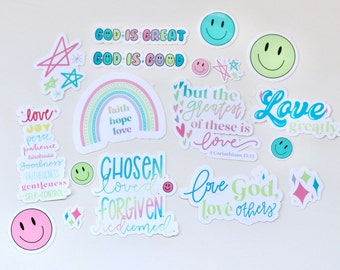 GOD IS GREAT
GOD IS GOOD
faith
hope
love
but the
greatest
of these is
love
1 Corinthians 13:13
Love
greatly
love
joy
peace
patience
kindness
goodness
faithfulness
gentleness
self-control
CHOSEN
loved
FORGIVEN
redeemed
love God,
love others